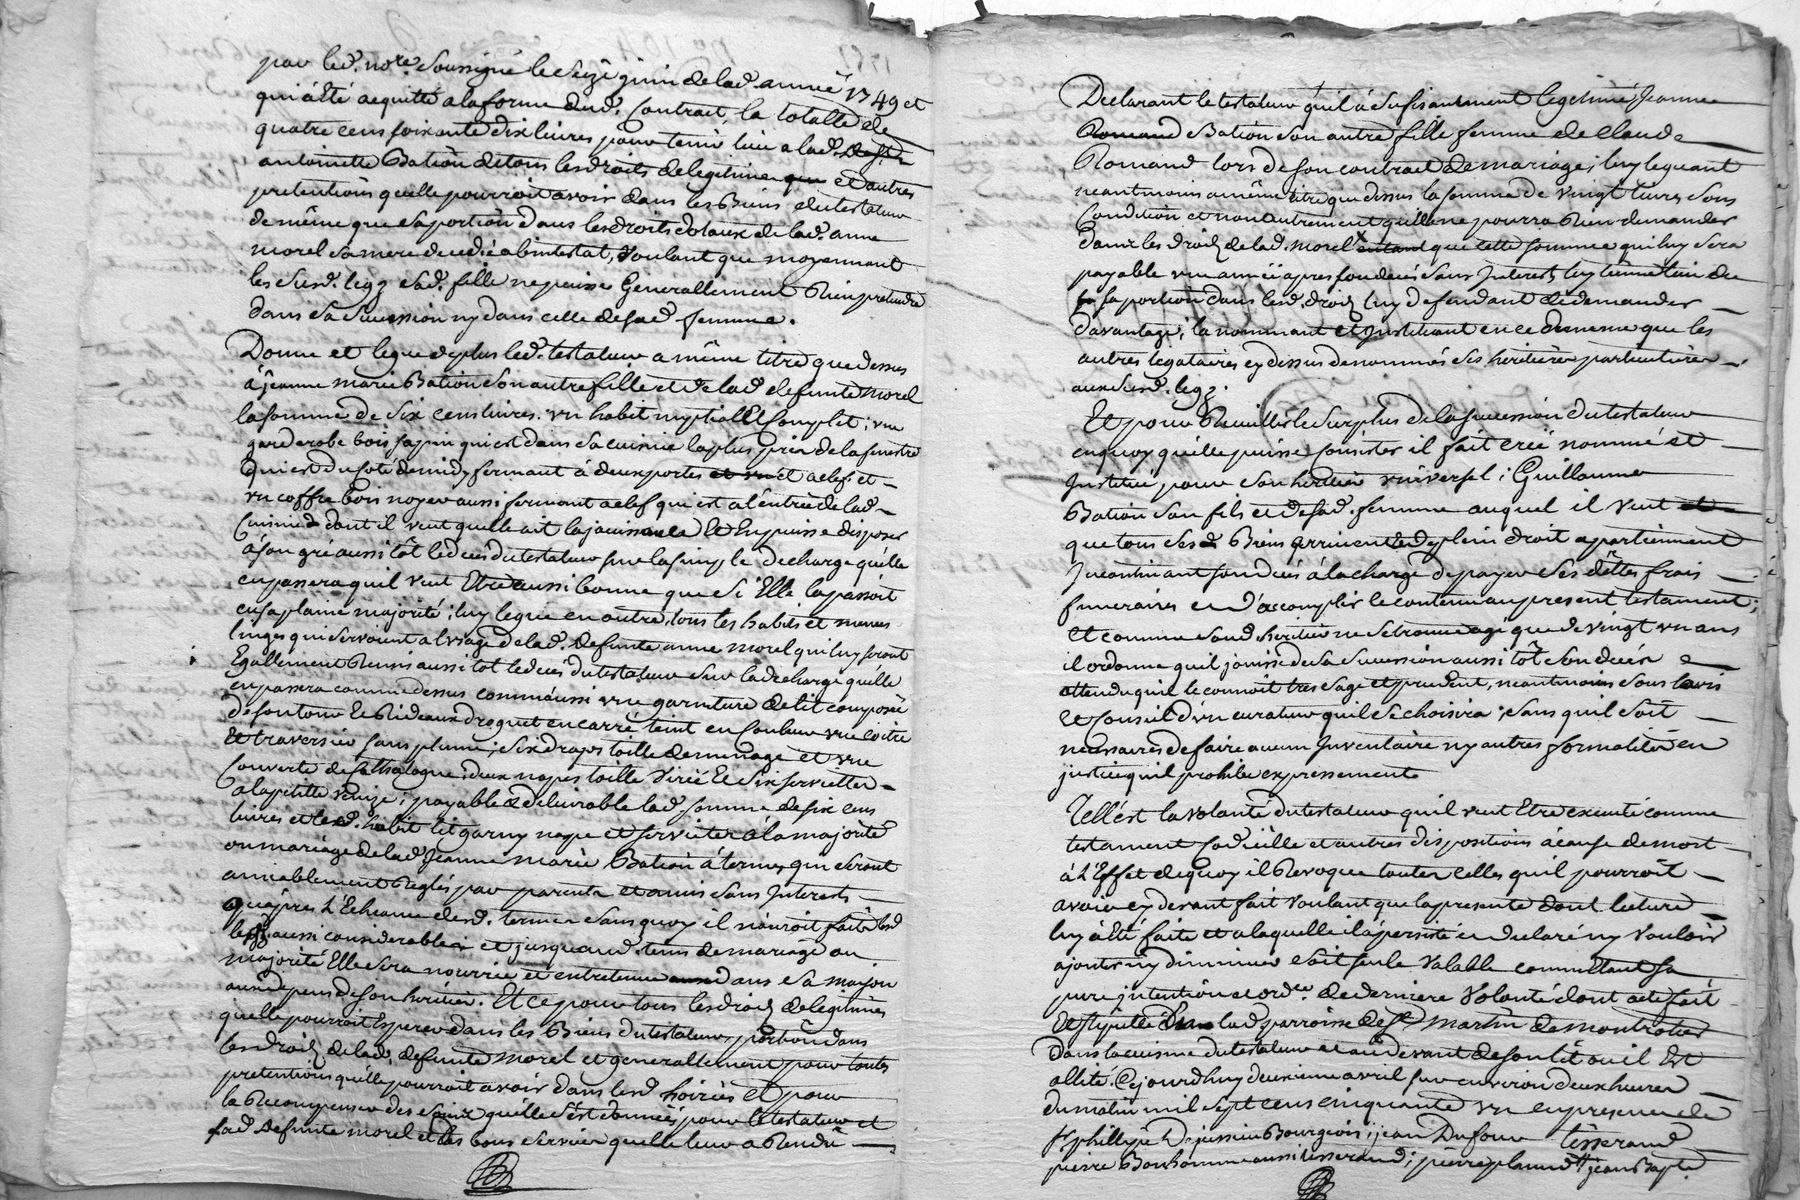 par led. nore. soussigné le seize juin de lad. année 1749 et
qui a été acquitté a la forme dud. Contrait, la totalle de
quatre cens soixante dix livres pour tenir lieu a lad.
antoinette Bation de tous les droits de legitime que et d'autres
pretentions quelle pourroit avoir dans les Biens du testateur
de même que sa portion dans les droits dotaux de lad. anne
morel sa mere decedée abintestat, voulant que moyennant
les susd. legz sad. fille ne puisse Generallement Rien pretendre
dans sa succession ny dans celle de sad. femme.
Donne et legue de plus led. testateur a même titre que dessus
à jeanne marie Bation son autre fille et de lad. defunte morel
la somme de six cens livres. un habit nuptial Et Complet ; une
garderobe bois sapin qui est dans sa cuisine la plus près de la fenestre
qui est du coté de midy fermant à deux portes et un et a clef. et
un coffre bois noyer aussi fermant a clef qui est a l'entrée de lad.
Cuisine dont il veut quelle ait la jouissance Et En puisse disposer
à son gré aussi tôt le deces du testateur sur la simple decharge qu'elle
en passera qu'il veut Etre aussi bonne que si Elle la passoit
en sa plaine majorité ; luy legue en outre tous les habits et menus
linges qui servoient a l'usage de lad. defunte anne morel qui luy seront
Egallement Remis aussi tot le deces du testateur sur la decharge qu'elle
en passera comme dessus comm'aussi une garniture de lit composée
de son tour Et Rideaux droguet en carré teint en couleur une coitre
Et traversier sans plume, six draps toille de menage et une
Couverte de Cathalogne ; deux napes toille Et six serviettes
a la petitte venize ; payable & delivrable lad. somme de six cens
livres et led. habit lit garny nape et serviettes à la majorité
ou mariage de lad. Jeanne marie Bation à termes qui seront
amiablement Reglés par parents et amis sans Interests
qu'apres L'Echeance desd. termes sans quoy il n'auroit fait led.
legz aussi considerable et jusqu'aud. tems de mariage ou
majorité Elle sera nourrie et entretenue dans sa maison
aux depens de son heritier. Et ce pour tous les droits de legitimes
quelle pourroit Esperer dans les Biens du testateur, portion dans
les droits de lad. defunte morel et generallement pour toutes
pretentions qu'elle pourroit avoir dans lesd. hoiries Et pour
la Recompenser des soins qu'elle s'est donnée pour le testateur et
lad. defunte morel et des bons services quelle leur a Rendu
Declarant le testateur qu'il à sufisamment legitimé Jeanne
Romand Bation son autre fille femme de claude
Romand lors de son contract de mariage ; luy leguant
neantmoins a même titre que dessus la somme de vingt livres sous
Condition et non autrement qu'elle ne pourra Rien demander
dans les droits de lad. morel que cette somme qui luy sera
payable une année apres son deces sans Interest luy tienne lieu de
sa portion dans lesd. droits luy defendant de demander
davantage ; la nommant et Instituant en ce de mesme que les
autres legataires cy dessus denommés ses heritieres particulieres
aux susd. legz.
Et pour Recueillir le surplus de la succession du testateur
en quoy qu'elle puisse consister il fait créé nommé et
Institue pour son heritier universel ; Guillaume
Bation son fils et de sad. femme auquel il veut
que tous sesd. Biens arrivent Et de plein droit apartiennent
Incontinant son deces à la charge de payer ses dêttes frais
funeraires et d'accomplir le contenu au present testament ;
Et comme sond. heritier ne se trouve agé que de vingt un ans
il ordonne qu'il jouisse de sa succession aussi tôt son decés
attendu qu'il le connoit tres sage et prudent, neantmoins sous l'avis
Et Conseil d'un curateur qu'il se choisira ; sans qu'il soit
necessaires de faire aucun Inventaire ny autres formalités en
justice qu'il prohibe expressement
Tell'est la volonté du testateur qu'il veut Etre executé comme
testament codicille et autres dispositions à cause de mort
à L'Effet de quoy il Revoque toutes celles qu'il pourroit
avoir cy devant fait voulant que la presente dont lecture
luy à été faite et a laquelle il à persisté et declaré ny vouloir
ajouter ny diminuer soit seule valable comm'étant sa
pure jntention et ordce. de derniere volonté dont acte fait
Et stipulé lad. parroisse de st. martin de montrotier
dans la cuisine du testateur et au devant de son lit ou il Est
allité. Cejourdhuy deuxieme avril sur environ deux heures
du matin mil sept cens cinquante un en presence de
sr. phillippe Dejussieu Bourgeois ; jean Dufour tisserand
pierre Bonhomme aussi tisserand ; pierre jean Bapte.